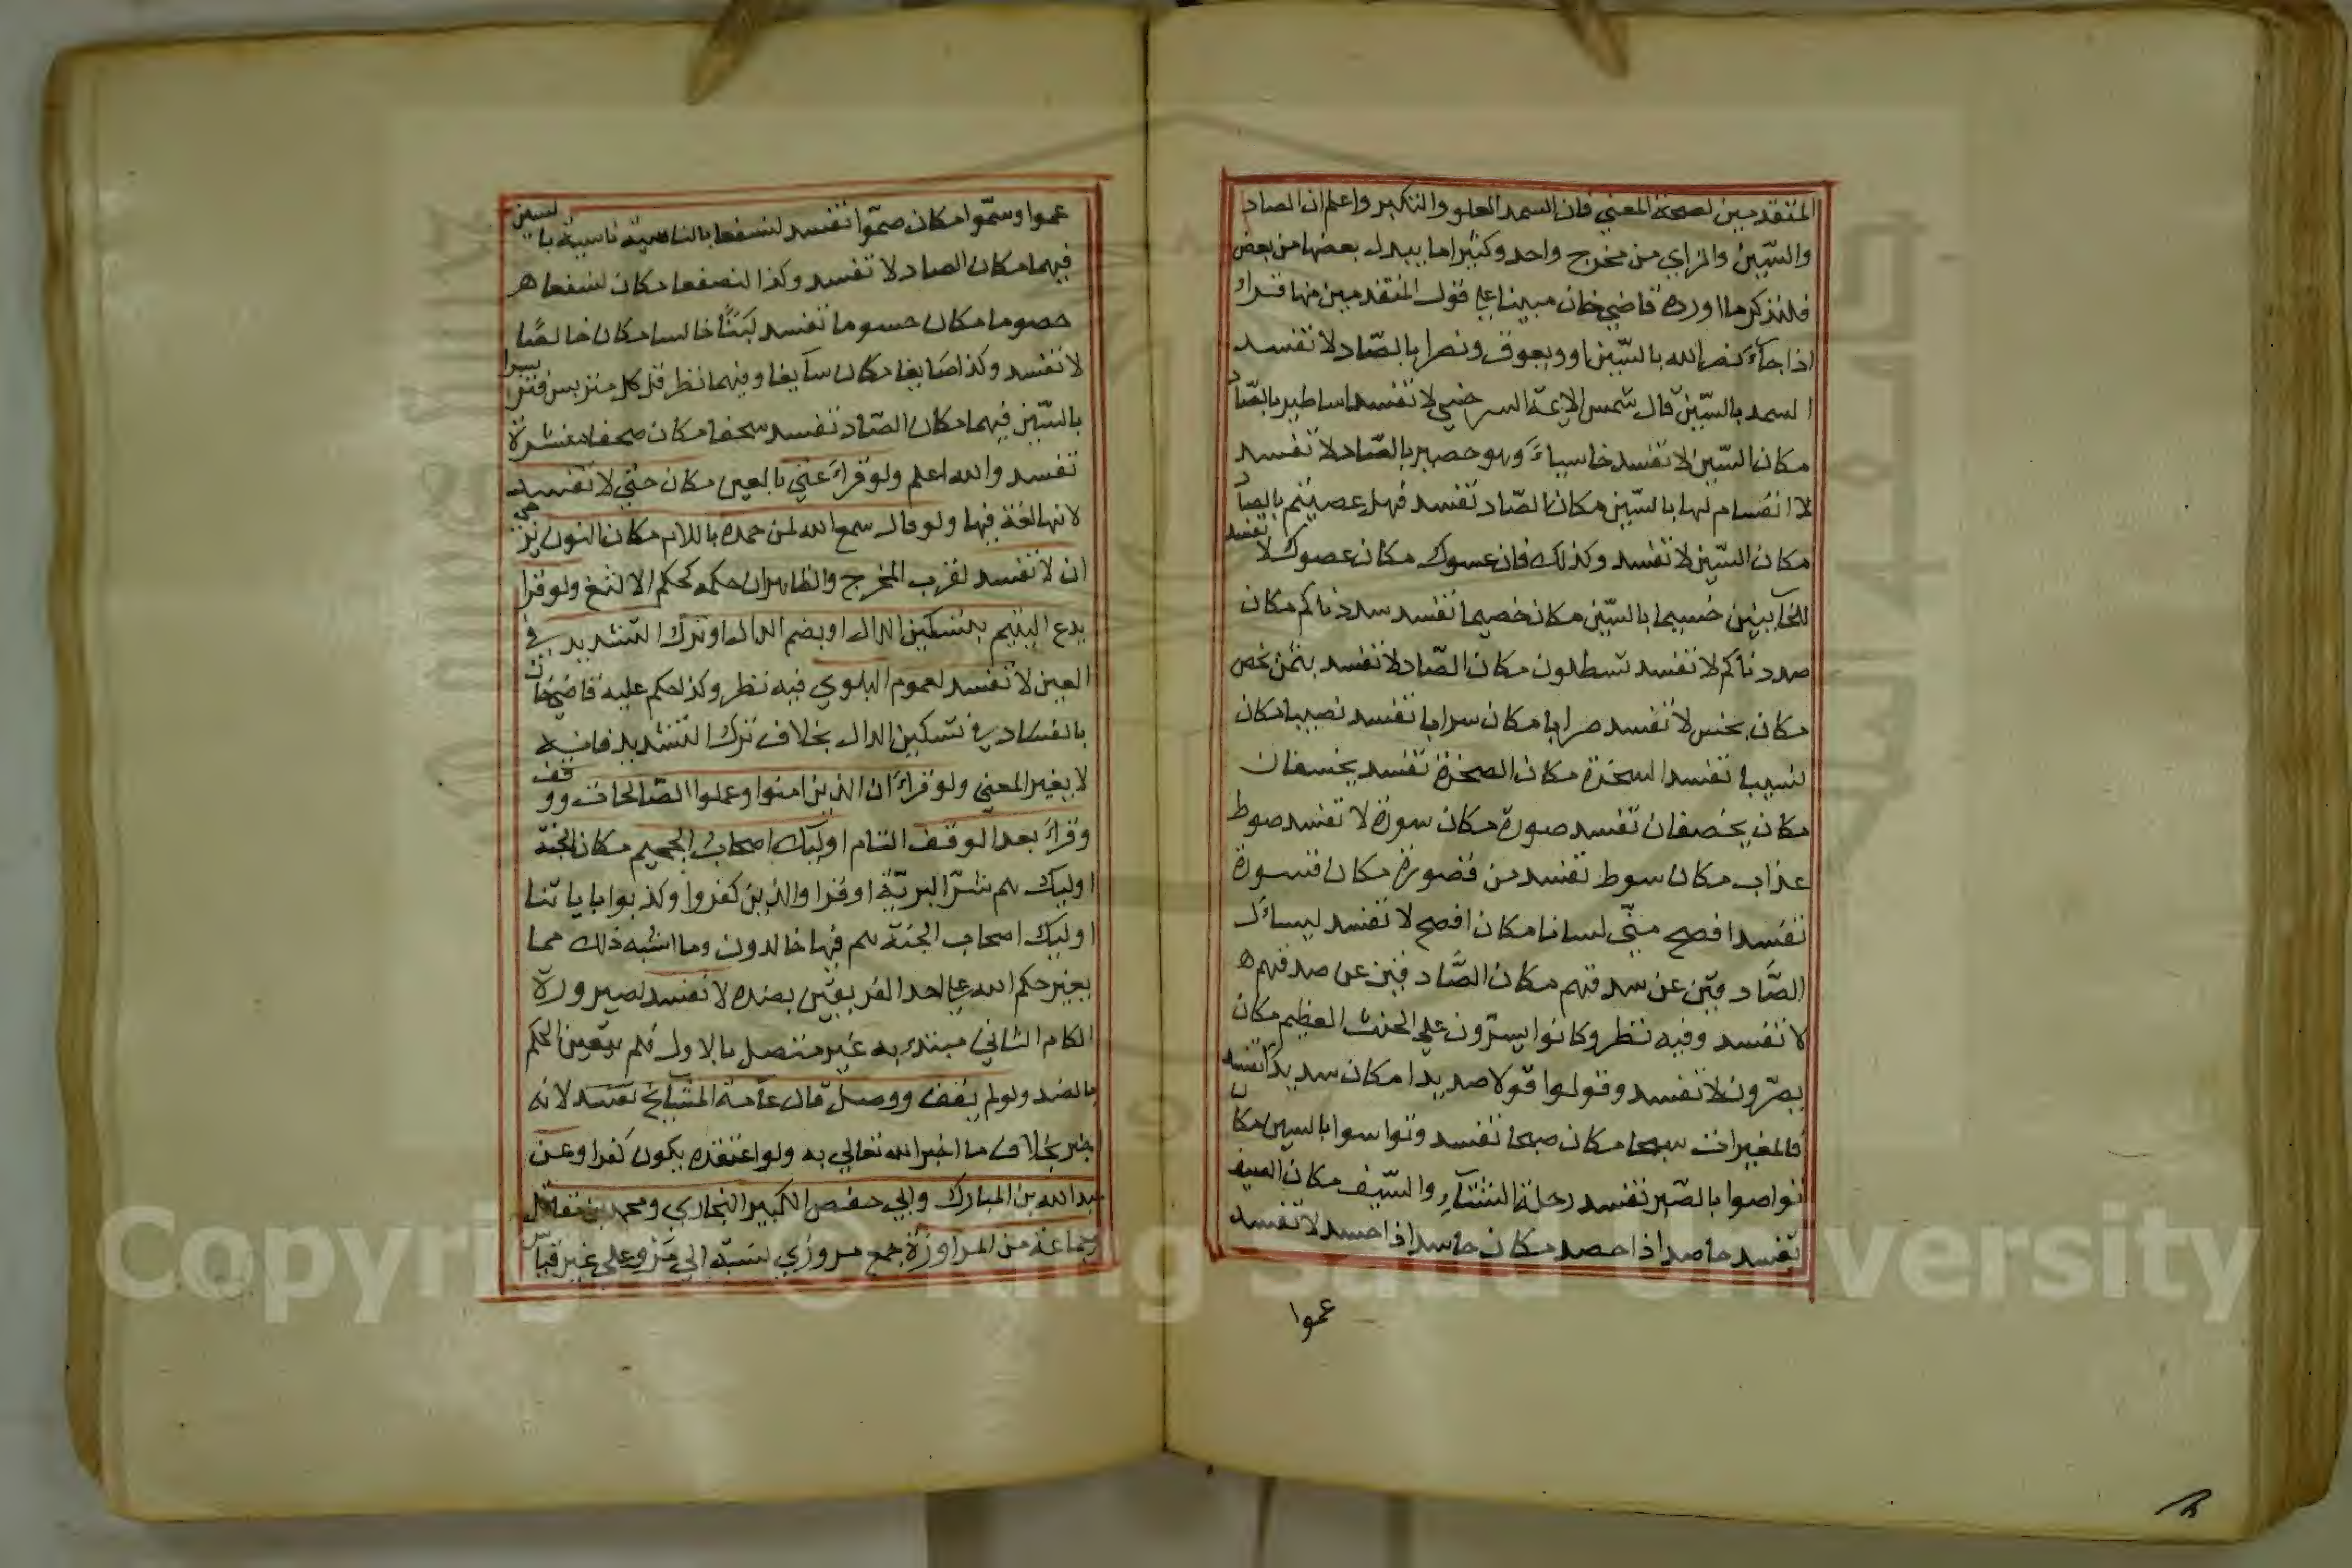 المتقدمين لصحة المعني فان السمد العلو والتكبر واعلم ان الصاد
والسّين والزاي من مخرج واحد وكثيرا ما يبدل بعضها من بعض
فلنذكر ما اورده قاضي خان مبينا علي قول المتقدمين منها قراء
اذا جآء نصر الله بالسّين او ويعوق ونصرا بالصّاد لا تفسد
السمد بالسّين قال شمس الايمة السرخسي لا تفسد اساطير بالصّاد
مكان السّين لا تفسد خاسياً وهو حصير بالصّاد لا تفسد
لا انفسام لها بالسّين مكان الصّاد تفسد فهل عصيتم بالصاد
مكان السّين لا تفسد وكذلك فان عسوك مكان عصوك لا تفسد
للخآيينين خسيما بالسّين مكان خصيما تفسد سددناكم مكان
صددناكم لا تفسد تسطلون مكان الصّاد لا تفسد بثمن بخص
مكان بخس لا تفسد صرابا مكان سرابا تفسد نصيبا مكان
نسيبا تفسد السخرة مكان الصخرة تفسد يخسفان
مكان يخصفان تفسد صورة مكان سورة لا تفسد صوط
عذاب مكان سوط تفسد من قصورة مكان قسورة
تفسد افسح منّي لسانا مكان افصح لا تفسد ليساءل
الصّاد قين عن سدقهم مكان الصّاد قين عن صدقهم ه
لا تفسد وفيه نظر وكانوا يسرّون علي الحنث العظيم مكان
يصرّون لا تفسد وقولوا قولا صديدا مكان سديدا تفسد
فالمغيرات سبحا مكان صبحا تفسد وتواسوا بالسين مكان
تواصوا بالصّبر تفسد رحلة الشتآءِ والسّيف مكان الصيف
تفسد حاصد اذا حصد مكان حاسد اذا حسد لا تفسد
عموا
عموا وسمّوا مكان صمّوا تفسد لنسفعا بالناسية ناسية بالسين
فيهما مكان الصاد لا تفسد وكذا لنصفعا مكان لنسفعا ه
حصوما مكان حسوما تفسد لبنًا خالسا مكان خالصًا
لا تفسد وكذا صايغا مكان سآيغا وفيهما نظر قل كل متربس فتربسوا
بالسّين فيهما مكان الصّاد تفسد سحفا مكان صحفا منشرة
تفسد والله اعلم ولو قراءَ عتّي بالعين مكان حتّي لا تفسد
لانها لغة فيها ولو قال سمع الله لمن حمده باللام مكان النون يرجي
ان لا تفسد لقرب المخرج والظاهر ان حكمه كحكم الالثغ ولو قرا
يدع اليتيم بتسكين الدال او بضم الدال او ترك التشديد في
العين لا تفسد لعموم البلوي فيه نظر وكذا حكم عليه قاضي خان
بالفساد في تسكين الدال بخلاف ترك التشديد فانه
لا يغير المعني ولو قراءَ ان الذين امنوا وعملوا الصّالحات ووقف
وقراءَ بعد الوقف التام اوليك اصحاب الجحيم مكان الجنّة
اوليك هم شرّ البريّة او قرا والذين كفروا وكذبوا باياتنا
اوليك اصحاب الجنّة هم فيها خالدون وما اشبه ذلك مما
يغير حكم الله علي احد الفريقين بضده لا تفسد لصيرورة
الكلام الثاني مبتدء به غير متصل بالاول فلم يتعين الحكم
بالضد ولو لم يقف ووصل قال عامة المشايخ تفسد لانه
اخبر بخلاف ما اخبر الله تعالي به ولو اعتقده يكون كفرا وعن
عبد الله بن المبارك وابي حفص الكبير البخاري ومحمد بن مقاتل
وجماعة من المراوزة جمع مروزي نسبة الي مرو علي غير قياس
Copyright © King Saud University